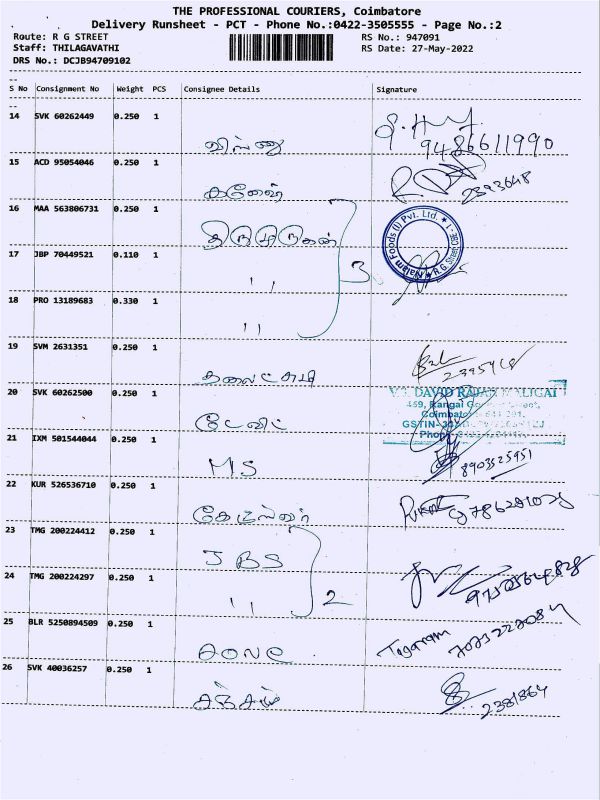 THE PROFESSIONAL COURIERS, Coimbatore
Delivery Runsheet - PCT - Phone No.:0422-3505555 - Page No.:2
Route: R G STREET RS No.: 947091
Staff: THILAGAVATHI RS Date: 27-May-2022
DRS No.: DCJB94709102
S No Consignment No Weight PCS Consignee Details Signature
14 SVK 60262449 0.250 1
விஷ்ணு 9486611990
15 ACD 95054046 0.250 1
கணேஷ் 2393648
16 MAA 563806731 0.250 1
திருமுருகன்
Nalam Foods (I) Pvt. Ltd. ★ R G Street, CBE - 1 ★
17 JBP 70449521 0.110 1
" 3
18 PRO 13189683 0.330 1
"
19 SVM 2631351 0.250 1
20 SVK 60262500 0.250 1
டேவிட்
459, Rangai
21 IXM 501544044 0.250 1
MS 8903525951
22 KUR 526536710 0.250 1
23 TMG 200224412 0.250 1
JBS
24 TMG 200224297 0.250 1
" 2
25 BLR 5250894509 0.250 1
26 SVK 40036257 0.250 1
சஞ்சய் 2381864